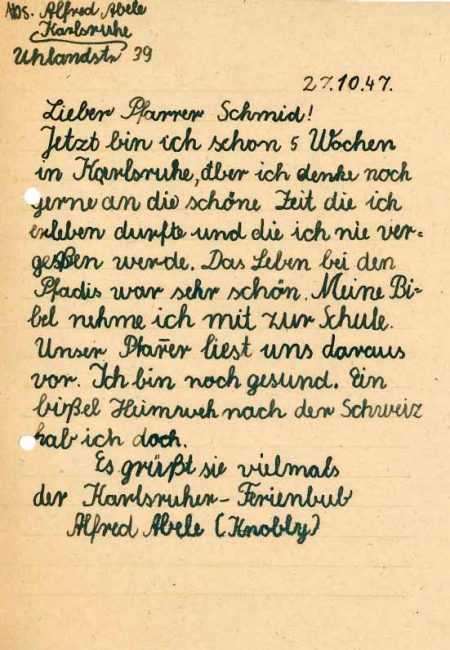 Abs. Alfred Abele
Karlsruhe
Uhlandstr 39
27.10.47.
Lieber Pfarrer Schmid!
Jetzt bin ich schon 5 Wochen
in Karlsruhe, aber ich denke noch
gerne an die schöne Zeit die ich
erleben durfte und die ich nie ver=
geßen werde. Das Leben bei den
Pfadis war sehr schön. Meine Bi=
bel nehme ich mit zur Schule.
Unser Pfar̄er liest uns daraus
vor. Ich bin noch gesund. Ein
bißel Heimweh nach der Schweiz
hab ich doch.
Es grüßt sie vielmals
der Karlsruher-Ferienbub
Alfred Abele (Knobby)